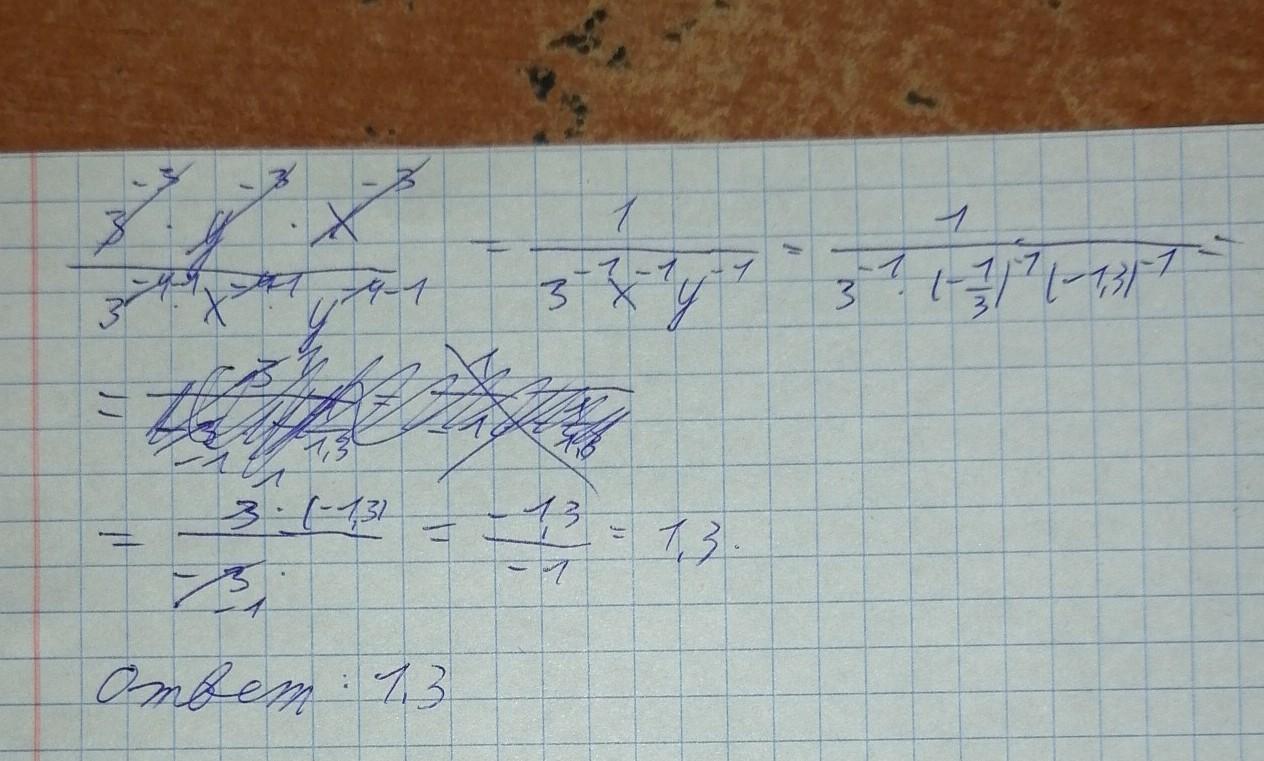 3⁻³ · y⁻³ · x⁻³ / 3⁻⁴⁻¹ · x⁻⁴⁻¹ · y⁻⁴⁻¹ = 1 / 3⁻¹x⁻¹y⁻¹ = 1 / 3⁻¹ · (-1/3)⁻¹ (-1,3)⁻¹ =
=
= 3 · (-1,3) / -3 -1 = -1,3 / -1 = 1,3.
Ответ: 1,3